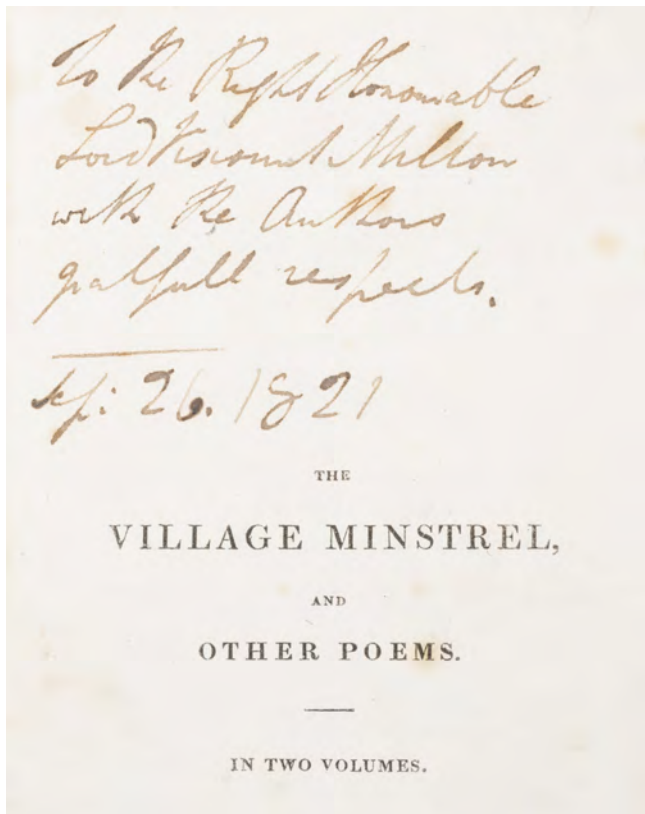 To the Right Honourable
Lord Viscount Milton
with the Authors
gratfull respects.
Sep: 26. 1821
THE
VILLAGE MINSTREL,
AND
OTHER POEMS.
IN TWO VOLUMES.